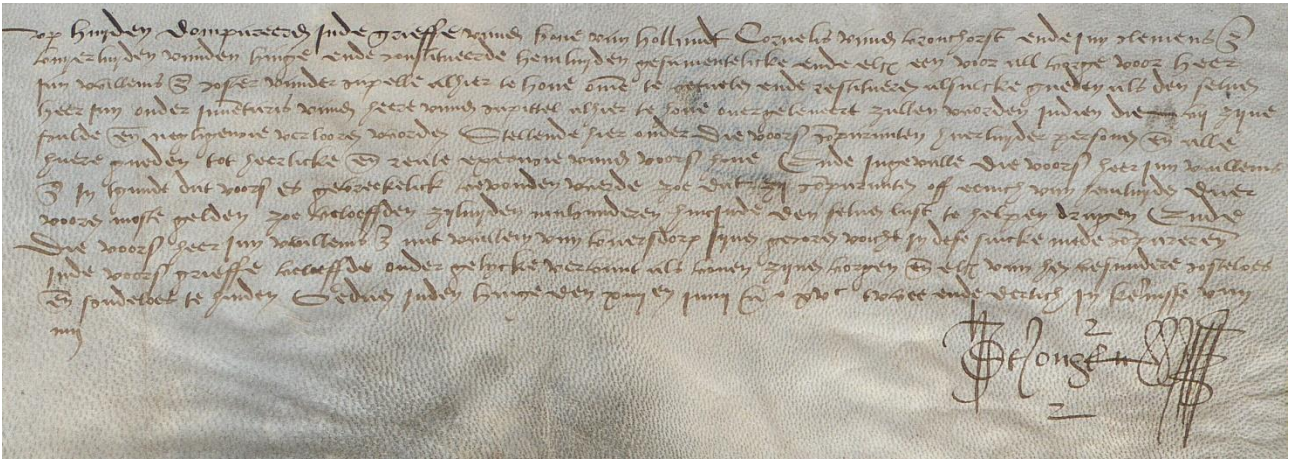 Op huyden Compareerden Inde Grieffe vanden hove van hollandt Cornelis vanden bronchorst ende Jan Clemens z
wonerluyden vanden hage ende constitueerde hemluyden gesamentlicke ende elcx een voor all borge voor heer
Jan willems z coster vander capelle alhier te hove omme te betaelen ende restitueren alsulcke gueden als den selven
heer Jan onder Inventaris vanden heere vanden capittel alhier te hove overgelevert zullen worden Indien die bij zijne
sculde en negligencie verlooren worden Stellende hier onder die voors comparanten huerluyder persoonen en alle
huere gueden tot heerlicke en reale executie vanden voors hove Ende Ingevalle die voors heer Jan willems
z In handt dat voors es gebreeckelick bevonden werde zoe dat zij comparanten off eenich van hemluyden daer
vooren moste gelden zoe beloeffden zijluyden malcanderen hincinde den selven last te helpen dragen Ende
Die voors heer Jan willems z mit willem van loversdorp zijnen gecoren voicht In dese saicke mede comparerende
Inde voors grieffe beloeffde onder gelycke verbant als boven zijnen borgen en elcx van hen besundere costeloes
en scadeloes te houden Gedaen Inden hage den xiii en Junii xvc twee ende dertich In kennisse van
mij